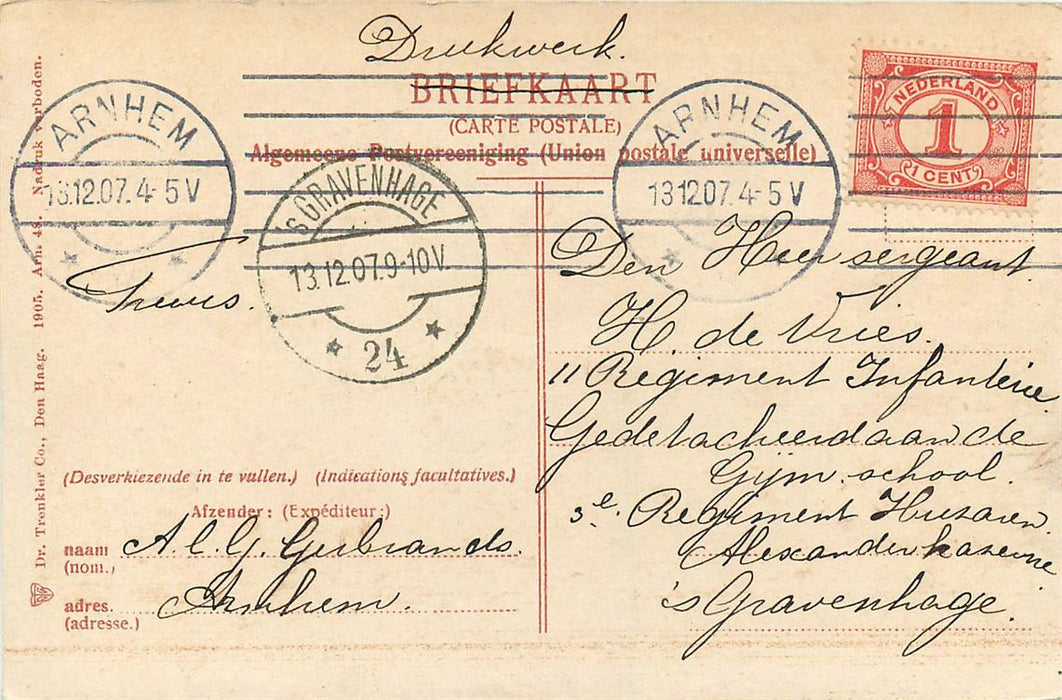 Drukwerk.
BRIEFKAART
(CARTE POSTALE)
Algemeene Postvereeniging (Union postale universelle)
NEDERLAND
1
1 CENT
ARNHEM
13.12.07. 4-5 V
ARNHEM
13.12.07. 4-5 V
'S GRAVENHAGE
13.12.07. 9-10V.
24
Den Heer sergeant
H. de Vries.
11 Regiment Infanterie
Gedetacheerd aan de
Gijm. school.
3e. Regiment Huzaren
Alexander kazerne
's Gravenhage.
(Desverkiezende in te vullen.) (Indications facultatives.)
Afzender: (Expéditeur:)
naam A. C. G. Gerbrands.
(nom.)
adres. Arnhem.
(adresse.)
Dr. Trenkler Co., Den Haag. 1905. Arn. 48. Nadruk verboden.